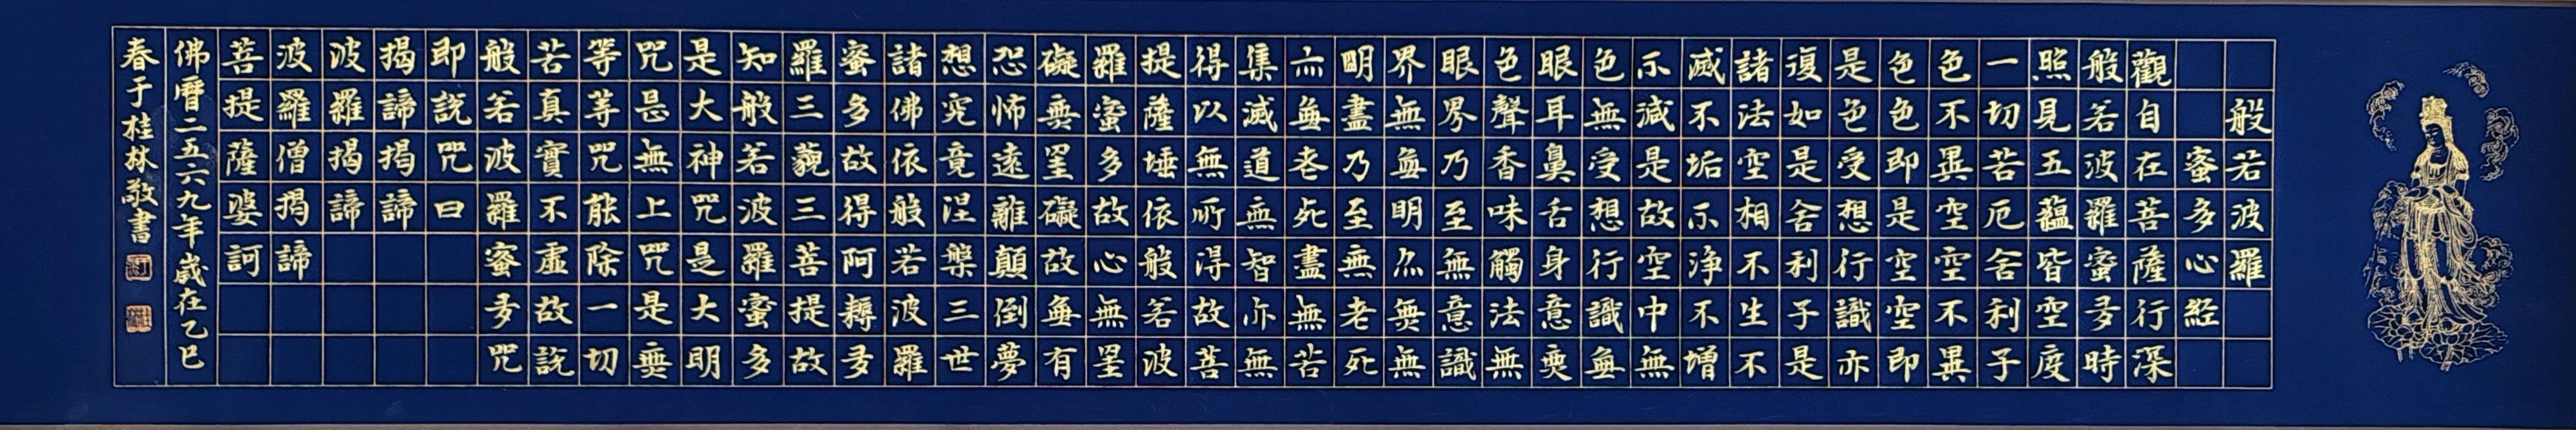 般若波羅
蜜多心經
觀自在菩薩行深
般若波羅蜜多時
照見五蘊皆空度
一切苦厄舍利子
色不異空空不異
色色即是空空即
是色受想行識亦
復如是舍利子是
諸法空相不生不
滅不垢不淨不增
不減是故空中無
色無受想行識無
眼耳鼻舌身意無
色聲香味觸法無
眼界乃至無意識
界無無明亦無無
明盡乃至無老死
亦無老死盡無苦
集滅道無智亦無
得以無所得故菩
提薩埵依般若波
羅蜜多故心無罣
礙無罣礙故無有
恐怖遠離顛倒夢
想究竟涅槃三世
諸佛依般若波羅
蜜多故得阿耨多
羅三藐三菩提故
知般若波羅蜜多
是大神咒是大明
咒是無上咒是無
等等咒能除一切
苦真實不虛故說
般若波羅蜜多咒
即說咒曰
揭諦揭諦
波羅揭諦
波羅僧揭諦
菩提薩婆訶
佛曆二五六九年歲在乙巳
春于桂林敬書